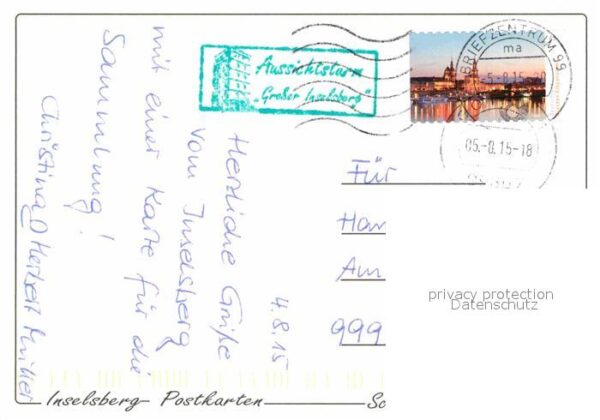 4.8.15
Herzliche Grüße
vom Inselsberg
mit einer Karte für die
Sammlung!
Christina & Herbert Müller
Aussichtsturm
„Großer Inselsberg"
BRIEFZENTRUM 99
ma
05.-8.15-18
Für
Han
Am
999
privacy protection
Datenschutz
Inselsberg- Postkarten
Sc